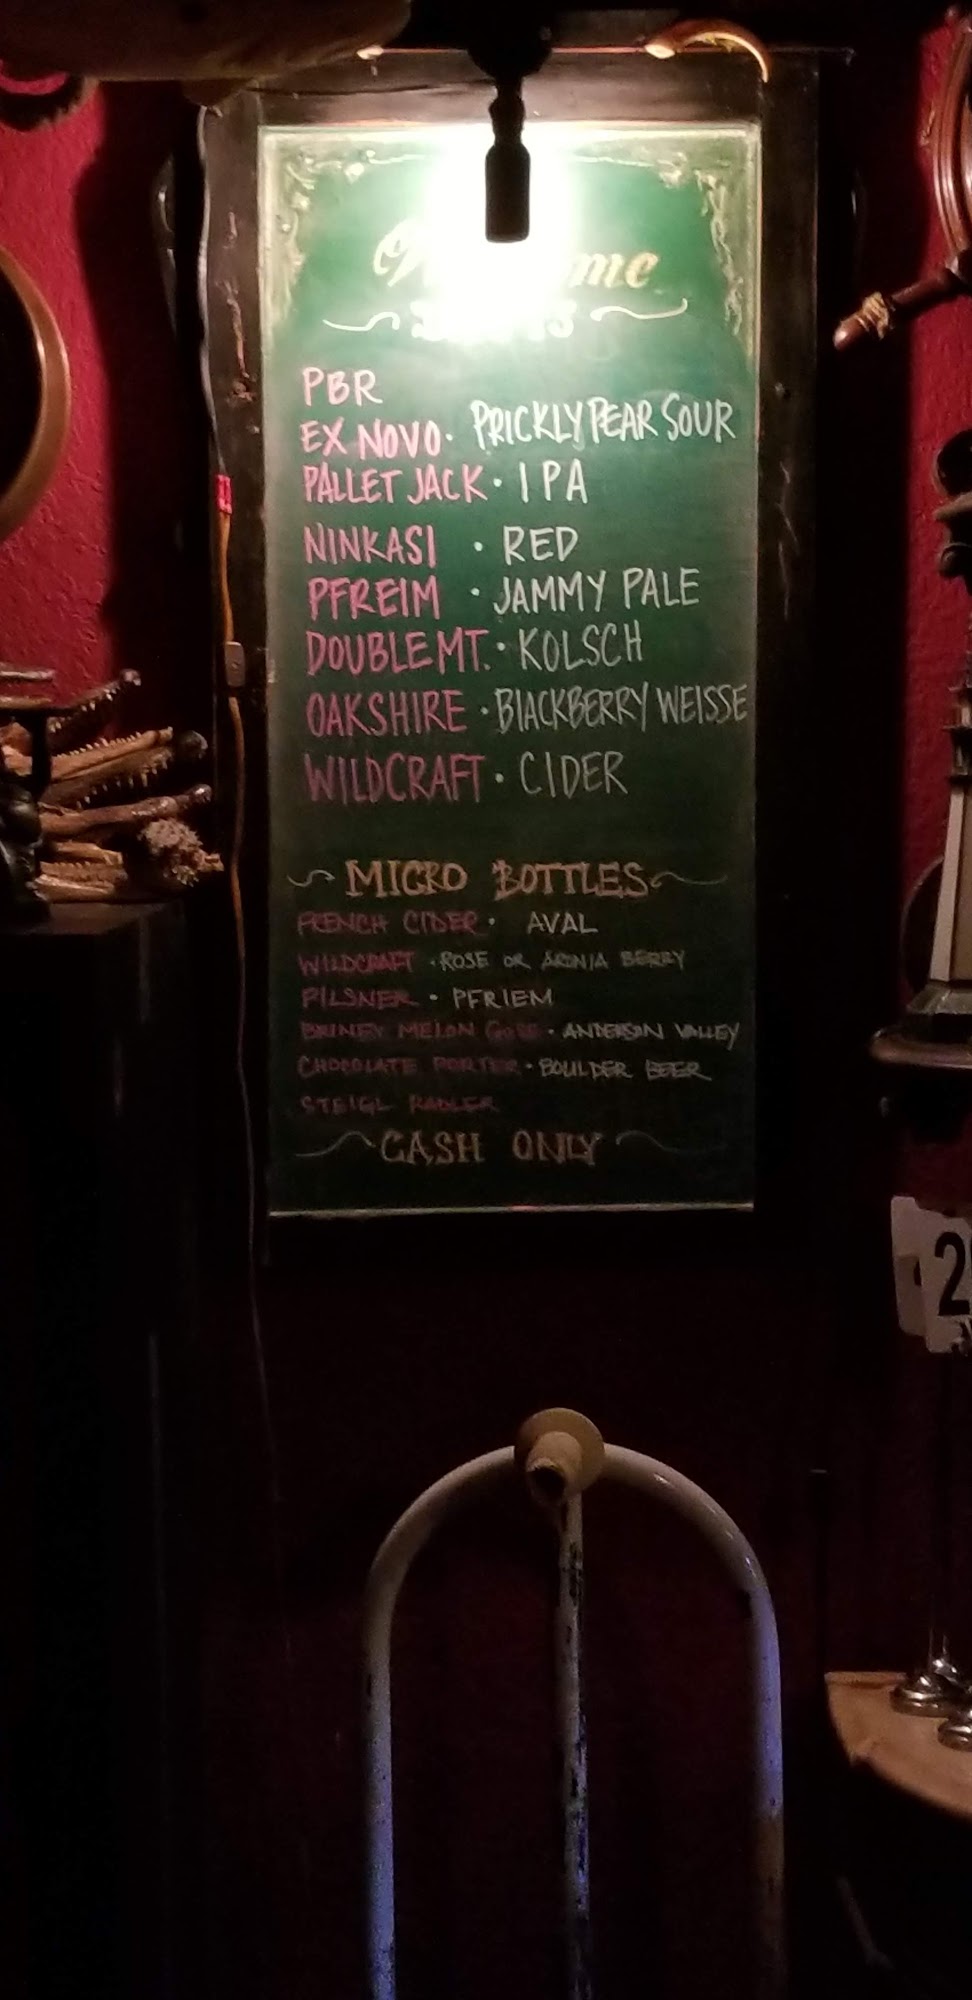 PBR
EX NOVO · PRICKLY PEAR SOUR
PALLET JACK · IPA
NINKASI · RED
PFREIM · JAMMY PALE
DOUBLE MT. · KOLSCH
OAKSHIRE · BLACKBERRY WEISSE
WILDCRAFT · CIDER
MICRO BOTTLES
FRENCH CIDER · AVAL
WILDCRAFT · ROSE OR ARONIA BERRY
PILSNER · PFRIEM
BRINEY MELON GOSE · ANDERSON VALLEY
CHOCOLATE PORTER · BOULDER BEER
STEIGL RADLER
CASH ONLY